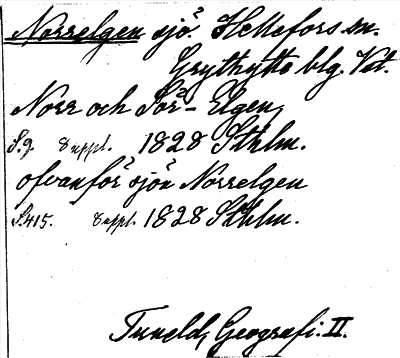 Norrelgen sjö. Hellefors sn.
Grythytte blg. Vstl.
Norr och Sör-Elgen,
S. 9. 8 uppl. 1828 Sthlm.
ofvanför sjön Norrelgen
S. 415. 8 uppl. 1828 Sthlm.
Tuneld, Geografi. II.